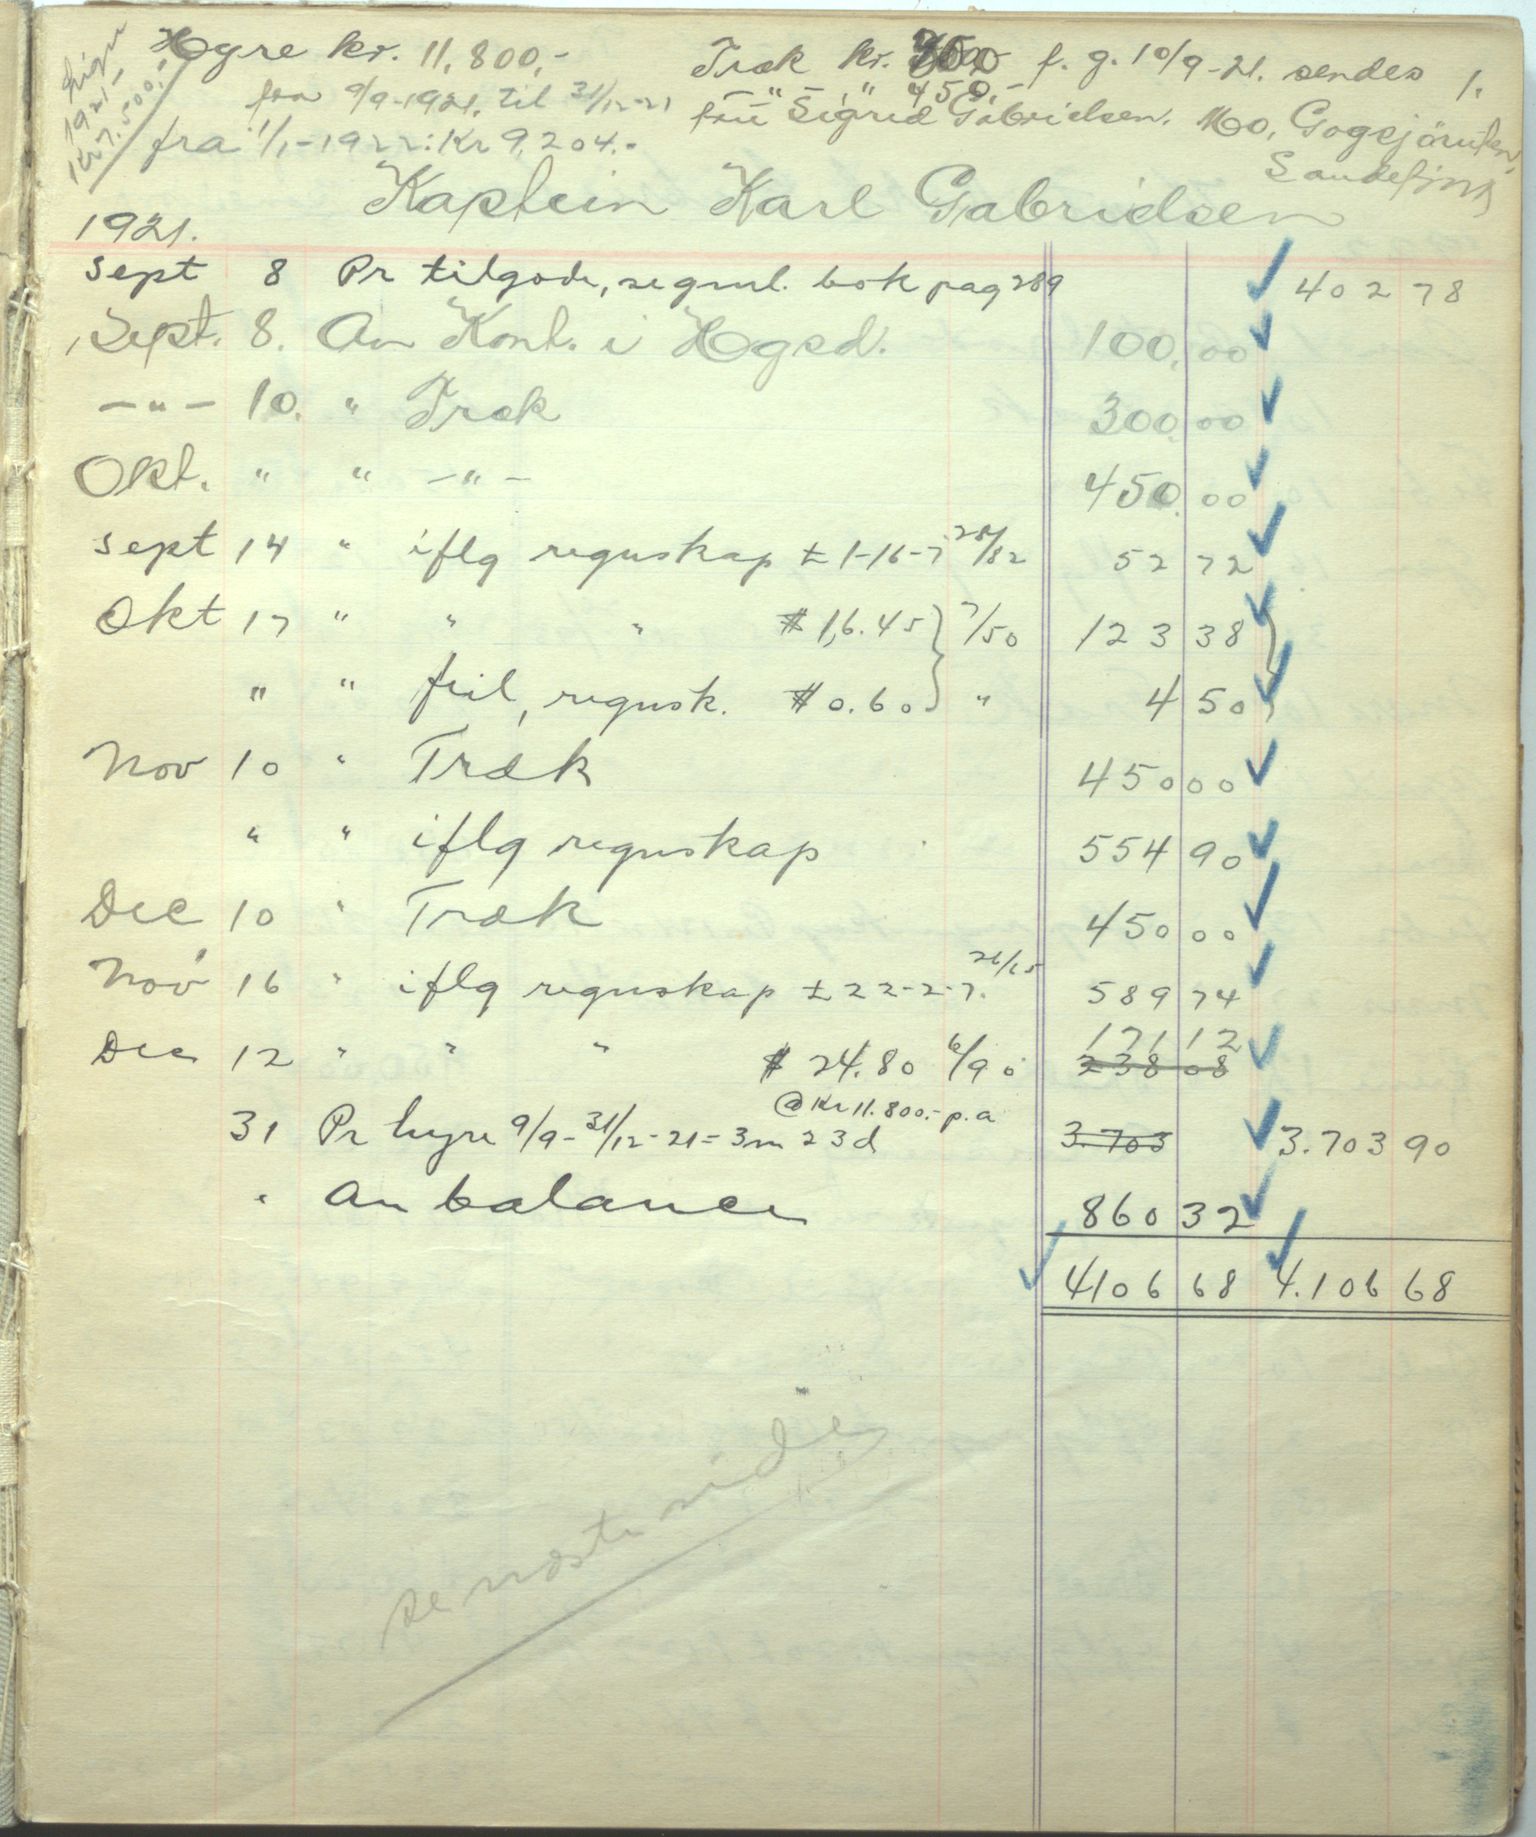 Hyre kr. 11.800,-
Træk kr. f. g. 10/9-21. sendes
1.
fra 9/9-1921. til 31/12-21
" " 450,-
fru Sigrid Gabrielsen. Mo, Gogsjöruten,
Sandefjord
1921-
Kr 7.500,-
fra 1/1-1922: Kr 9.204.-
Kaptein Karl Gabrielsen
1921.
Sept 8 Pr tilgode, se gml. bok pag 289 402 78
Sept. 8. An Kont. i Hgsd. 100,00
-"- 10. " Træk 300,00
Okt. " " -"- 450,00
Sept 14 " iflg regnskap £ 1-16-7 28/82 52 72
Okt 17 " " " $ 16.45 7/50 123 38
" " till, regnsk. $ 0.60 " 4 50
Nov 10 " Træk 450 00
" " iflg regnskap 554 90
Dec 10 " Træk 450 00
Nov 16 " iflg regnskap £ 22-2-7. 26/65 589 74
171 12
Dec 12 " " " $ 24.80 6/90 238 08
@ Kr 11.800.- p.a
31 Pr hyre 9/9-31/12-21 = 3m 23d 3.703 3.703 90
" An balance 860 32
4106 68 4.106 68
se næste side